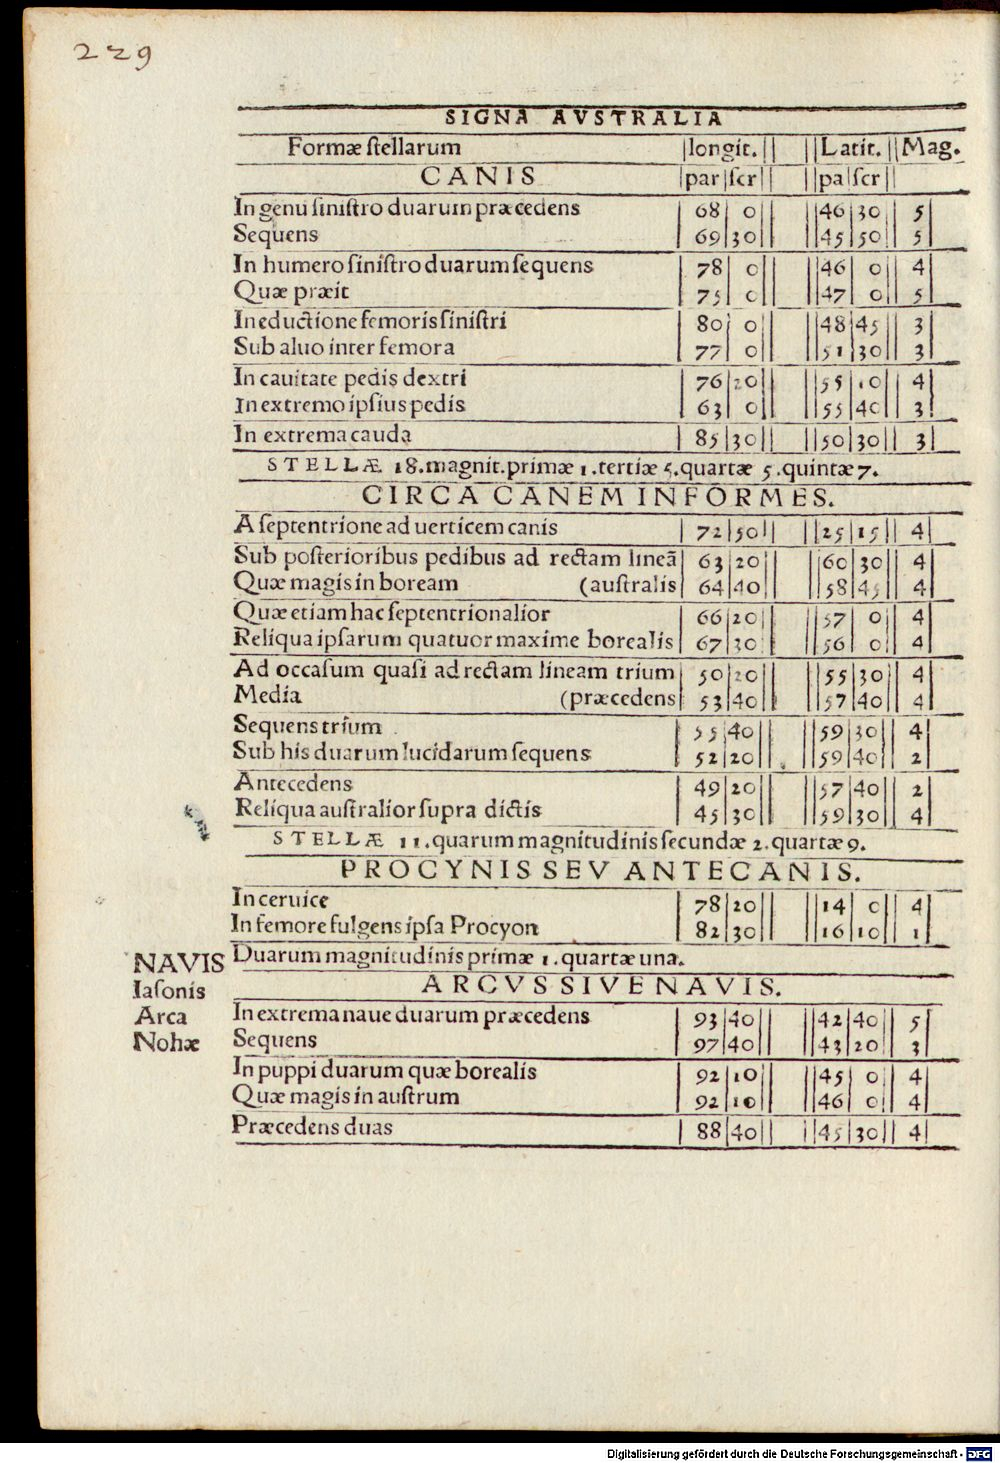 229
SIGNA AVSTRALIA
Formæ ſtellarum |longit.|| ||Latit.||Mag.
CANIS |par|ſcr|| ||pa|ſcr||
In genu ſiniſtro duarum præcedens | 68| 0|| ||46|30|| 5|
Sequens | 69|30|| ||45|50|| 5|
In humero ſiniſtro duarum ſequens | 78| 0|| ||46| 0|| 4|
Quæ præit | 75| 0|| ||47| 0|| 5|
In eductione femoris ſiniſtri | 80| 0|| ||48|45|| 3|
Sub aluo inter femora | 77| 0|| ||51|30|| 3|
In cauitate pedis dextri | 76|20|| ||55|10|| 4|
In extremo ipſius pedis | 63| 0|| ||55|40|| 3|
In extrema cauda | 85|30|| ||50|30|| 3|
STELLÆ 18.magnit.primæ 1.tertiæ 5.quartæ 5.quintæ 7.
CIRCA CANEM INFORMES.
A ſeptentrione ad uerticem canis | 72|50|| ||25|15|| 4|
Sub poſterioribus pedibus ad rectam lineā | 63|20|| ||60|30|| 4|
Quæ magis in boream (auſtralis | 64|40|| ||58|45|| 4|
Quæ etiam hac ſeptentrionalior | 66|20|| ||57| 0|| 4|
Reliqua ipſarum quatuor maxime borealis | 67|30|| ||56| 0|| 4|
Ad occaſum quaſi ad rectam lineam trium | 50|20|| ||55|30|| 4|
Media (præcedens | 53|40|| ||57|40|| 4|
Sequens trium | 55|40|| ||59|30|| 4|
Sub his duarum lucidarum ſequens | 52|20|| ||59|40|| 2|
Antecedens | 49|20|| ||57|40|| 2|
Reliqua auſtralior ſupra dictis | 45|30|| ||59|30|| 4|
STELLÆ 11.quarum magnitudinis ſecundæ 2.quartæ 9.
PROCYNIS SEV ANTECANIS.
In ceruice | 78|20|| ||14| 0|| 4|
In femore fulgens ipſa Procyon | 82|30|| ||16|10|| 1|
Duarum magnitudinis primæ 1.quartæ una.
NAVIS
Iaſonis
Arca
Nohæ
ARCVS SIVE NAVIS.
In extrema naue duarum præcedens | 93|40|| ||42|40|| 5|
Sequens | 97|40|| ||43|20|| 3|
In puppi duarum quæ borealis | 92|10|| ||45| 0|| 4|
Quæ magis in auſtrum | 92|10|| ||46| 0|| 4|
Præcedens duas | 88|40|| ||45|30|| 4|
Digitalisierung gefördert durch die Deutsche Forschungsgemeinschaft - DFG